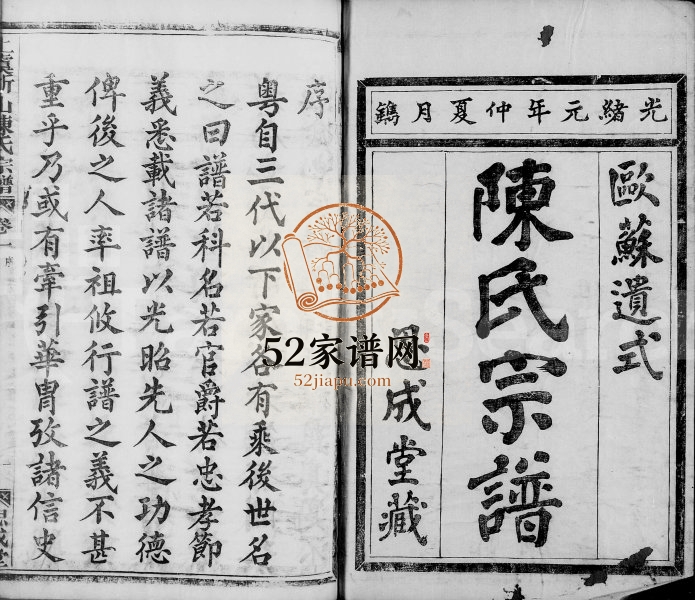 光緒元年仲夏月鐫
歐蘇遺式
陳氏宗譜
思成堂藏
序
粵自三代以下家各有乘後世名
之曰譜若科名若官爵若忠孝節
義悉載諸譜以光昭先人之功德
俾後之人率祖攸行譜之義不甚
重乎乃或有牽引華冑攷諸信史
陳氏宗譜
卷一
序
思成堂
52家谱网
52jiapu.com